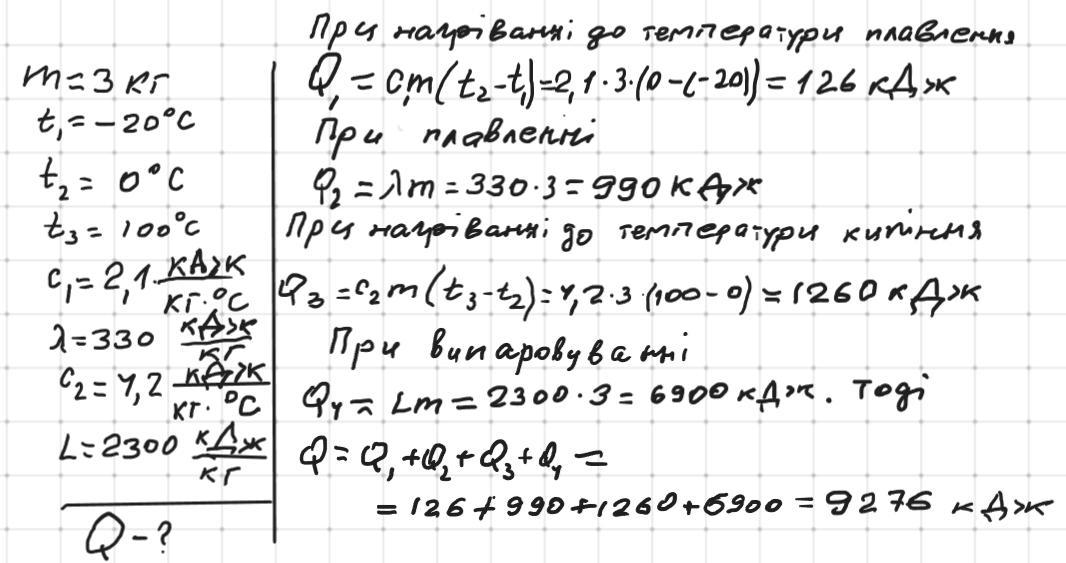 m = 3 кг
t₁ = -20°C
t₂ = 0°C
t₃ = 100°C
c₁ = 2,1 · кДж/кг·°C
λ = 330 кДж/кг
c₂ = 4,2 кДж/кг·°C
L = 2300 кДж/кг
Q - ?
При нагріванні до температури плавлення
Q₁ = c₁m(t₂-t₁) = 2,1·3·(0-(-20)) = 126 кДж
При плавленні
Q₂ = λm = 330·3 = 990 кДж
При нагріванні до температури кипіння
Q₃ = c₂m(t₃-t₂) = 4,2·3·(100-0) = 1260 кДж
При випаровуванні
Q₄ = Lm = 2300·3 = 6900 кДж. Тоді
Q = Q₁ + Q₂ + Q₃ + Q₄ =
= 126 + 990 + 1260 + 6900 = 9276 кДж